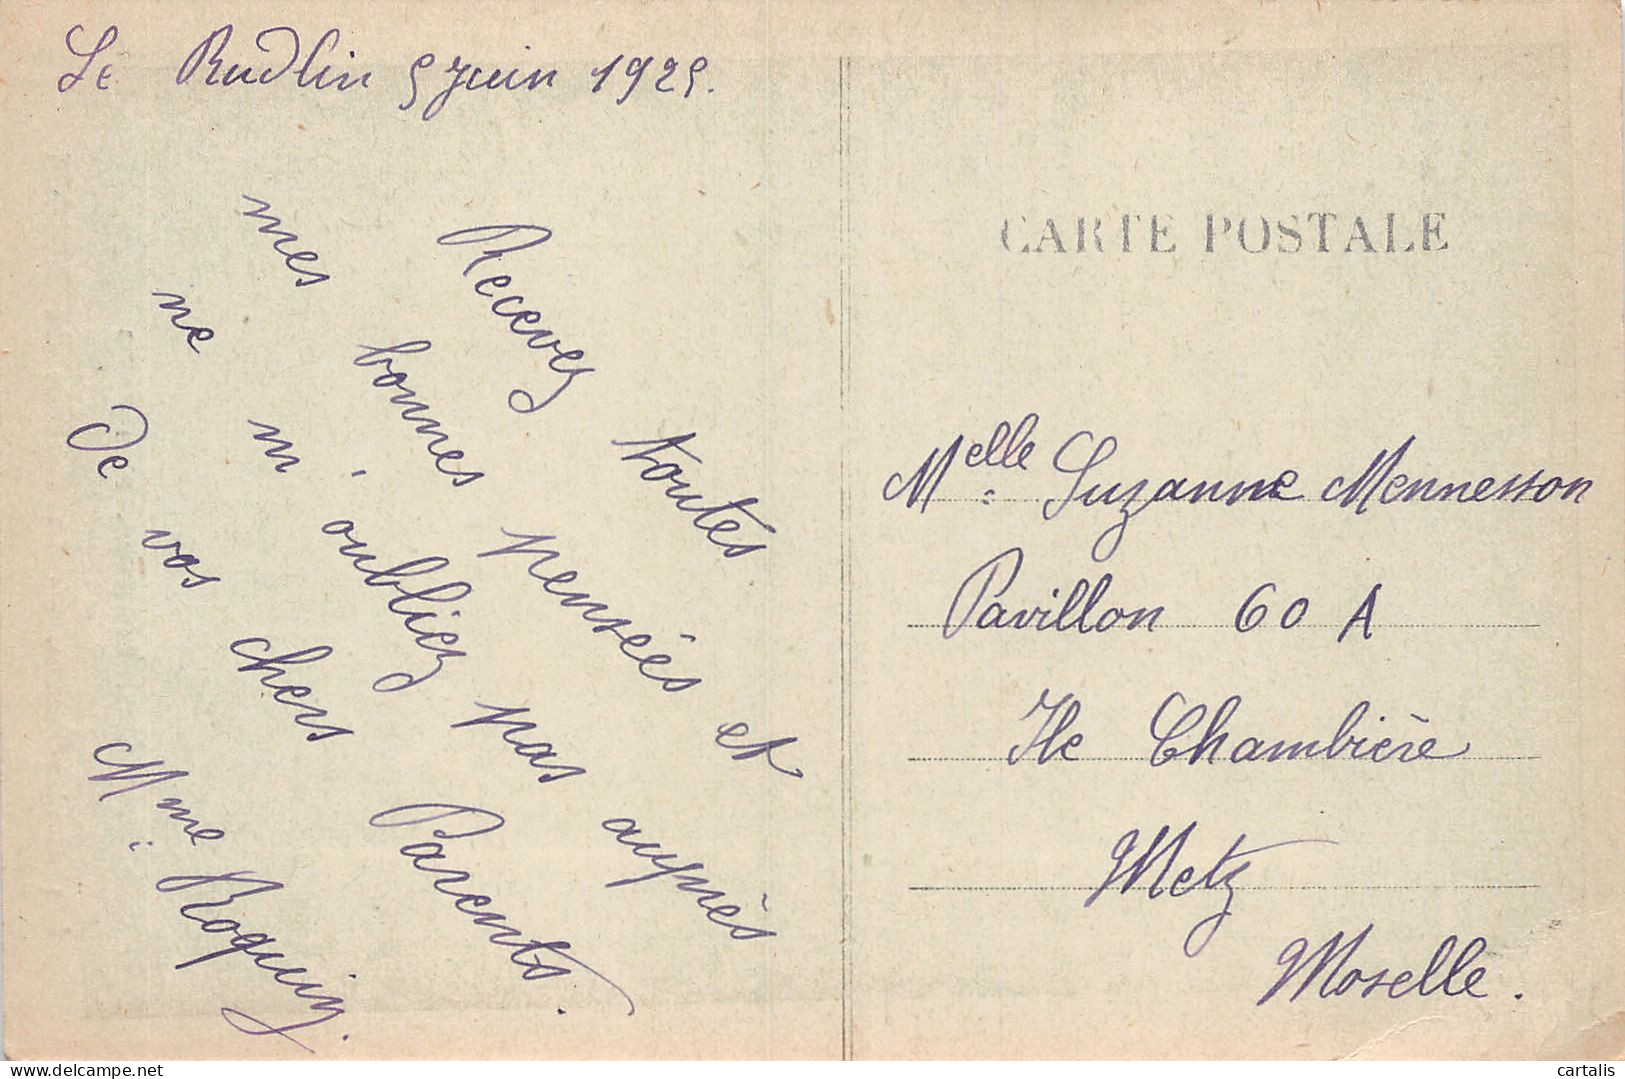 Le Rudlin 5 Juin 1925.
Recevez toutes
mes bonnes pensées et
ne m'oubliez pas auprès
de vos chers Parents.
Mme Roquin.
CARTE POSTALE
Melle Suzanne Mennesson
Pavillon 60 A
Ile Chambière
Metz
Moselle.
delcampe.net
cartalis